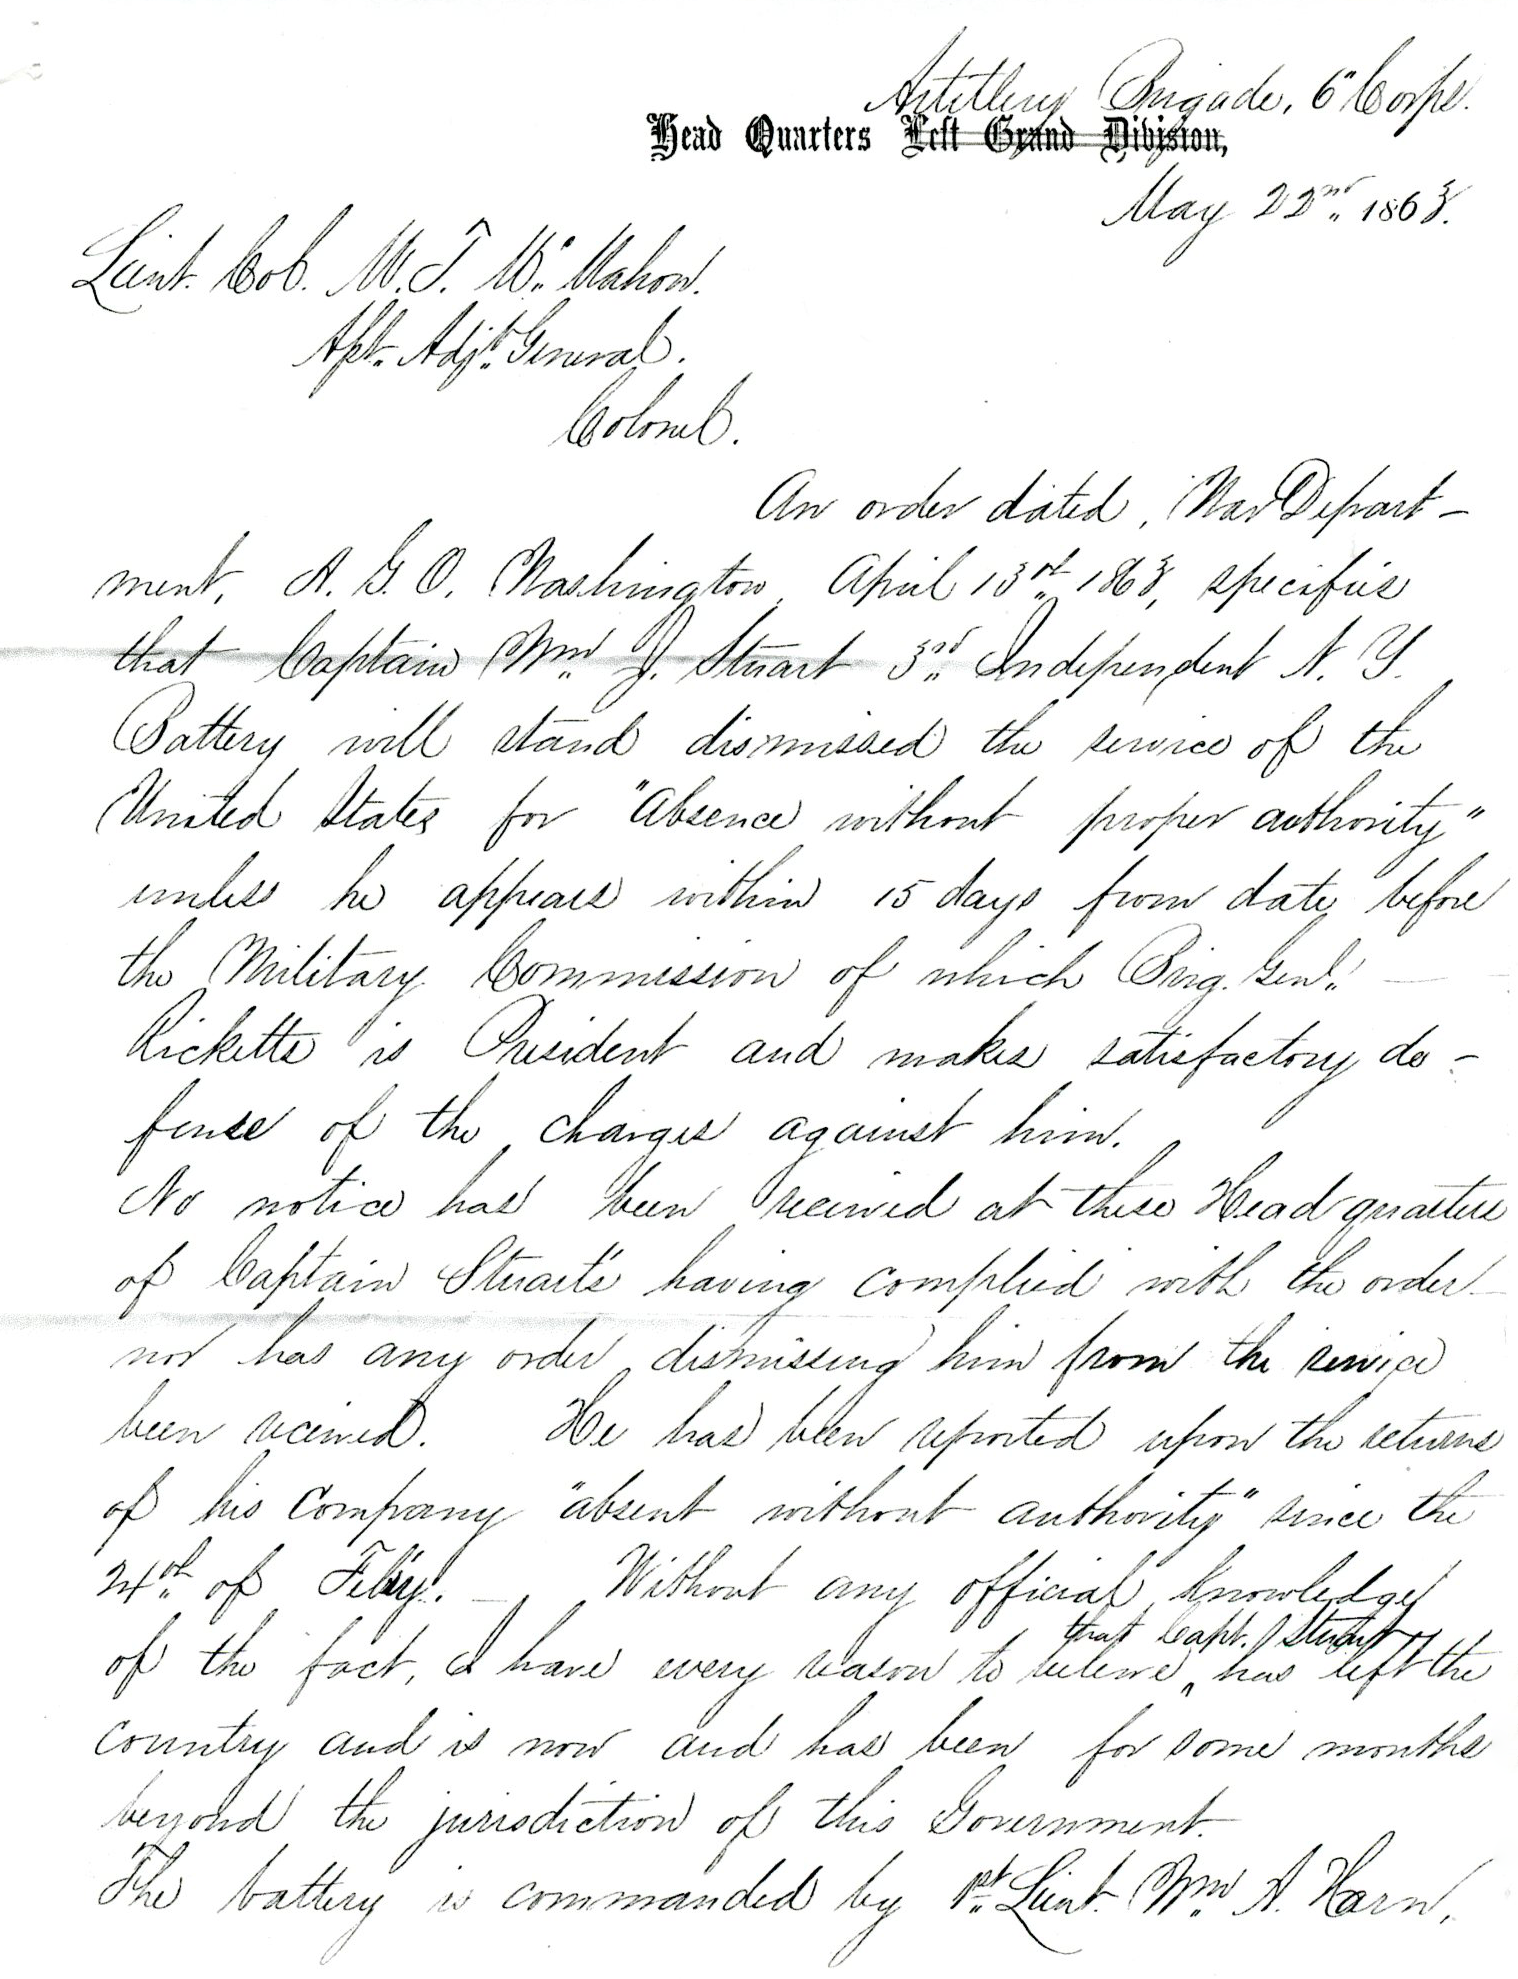 Artillery Brigade, 6" Corps.
Head Quarters Left Grand Division,
May 22nd 1863.
Lieut. Col. M. T. Mc Mahon.
Asst. Adjt. General.
Colonel.
An order dated, War Depart-
ment, A. G. O. Washington April 13th 1863, specifies
that Captain Wm J. Stuart 3rd Independent N. Y.
Battery will stand dismissed the service of the
United States for "Absence without proper authority"
unless he appears within 15 days from date before
the Military Commission of which Brig. Genl.
Ricketts is President and makes satisfactory de-
fense of the charges against him.
No notice has been received at these Head quarters
of Captain Stuart's having complied with the order
nor has any order dismissing him from the service
been received. He has been reported upon the returns
of his Company "absent without authority" since the
24th of Feby. Without any official knowledge
that Capt. Stuart
of the fact, I have every reason to believe has left the
country and is now and has been for some months
beyond the jurisdiction of this Government.
The battery is commanded by 1st Lieut. Wm A. Harn,